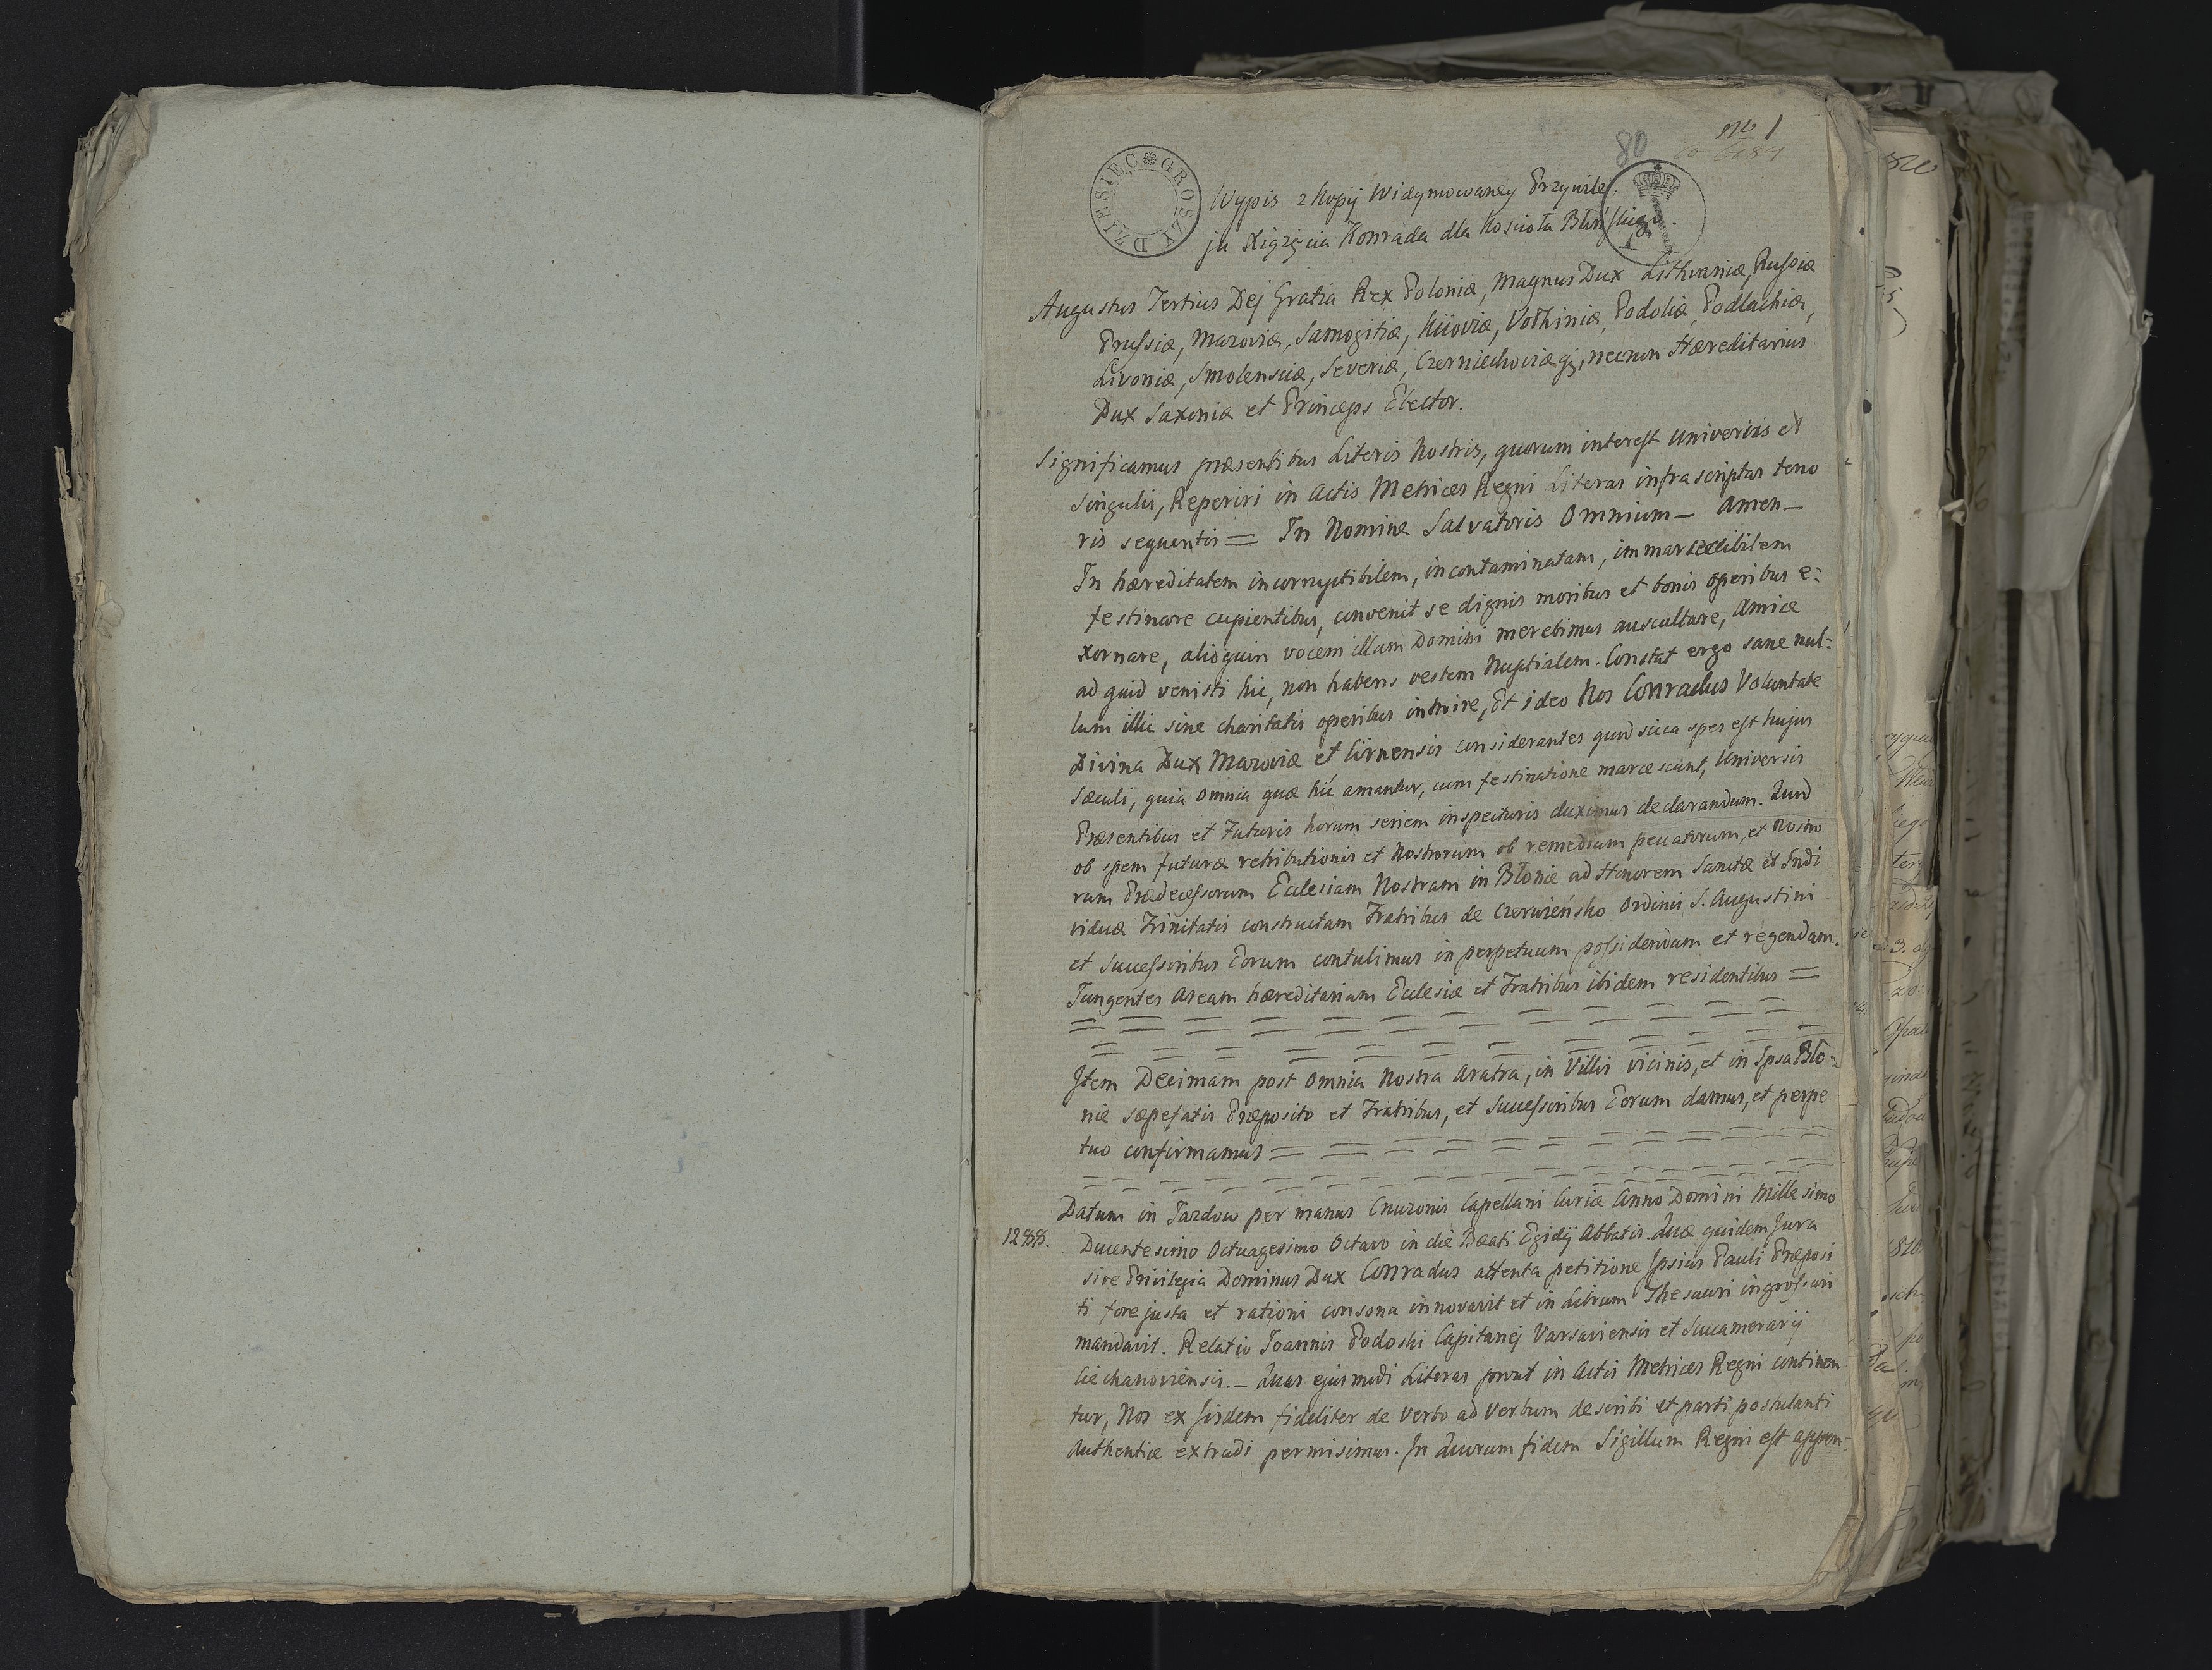 No 1
80
DZIESIĘĆ GROSZY
Wypis z Kopij Widymowaney Przywile
ju Xiązęcia Konrada dla Koscioła Błońskiego.
Augustus Tertius Dej Gratia Rex Poloniæ, Magnus Dux Lithvaniæ, Russiæ
Prussiæ, Mazoviæ, Samogitiæ, Kiioviæ, Volhiniæ, Podoliæ, Podlachiæ,
Livoniæ, Smolensciæ, Severiæ, Czerniechoviæq3, necnon Hæreditarius
Dux Saxoniæ et Princeps Elector.
Significamus præsentibus Literis Nostris, quorum interest Universis et
Singulis, Reperiri in Actis Metrices Regni Literas infrascriptas teno
ris sequentis = In Nomine Salvatoris Omnium – Amen –
In hæreditatem incorruptibilem, incontaminatam, immarcecibilem
festinare cupientibus, convenit se dignis moribus et bonis operibus e=
xornare, alioquin vocem illam Domini merebimus auscultare, Amice
ad quid venisti hic, non habens vestem Nuptialem. Constat ergo sane nul=
lum illic sine charitatis operibus introire, Et ideo Nos Conradus Voluntate
Divina Dux Mazoviæ et Cirnensis considerantes quod sicca spes est hujus
Sæculi, quia omnia quæ hic amantur, cum festinatione marcescunt, Universis
Præsentibus et Futuris horum seriem inspecturis duximus declarandum. Quod
ob spem futuræ retributionis et Nostrorum ob remedium peccatorum, et Nostro
rum Prædecessorum Ecclesiam Nostram in Błonie ad Honorem Sanctæ et Indi
viduæ Trinitatis constructam Fratribus de Czerwieńsko Ordinis S. Augustini
et Successoribus Eorum contulimus in perpetuum possidendam et regendam.
Jungentes Aream hæreditariam Ecclesiæ et Fratribus ibidem residentibus =
Item Decimam post Omnia Nostra Aratra, in Villis vicinis, et in Ipsa Bło=
nie sæpefatis Præposito et Fratribus, et Successoribus Eorum damus, et perpe
tuo confirmamus =
Datum in Jazdow per manus Cnuzonis Capellani Curiæ Anno Domini Millesimo
1288. Ducentesimo Octuagesimo Octavo in die Beati Egidij Abbatis. Quæ quidem Jura
sive Privilegia Dominus Dux Conradus attenta petitione Ipsius Pauli Præposi
ti fore justa et rationi consona innovavit et in Librum Thesauri ingrossari
mandavit. Relatio Joannis Podoski Capitanej Varsaviensis et Succamerarij
Ciechanoviensis. – Quas ejusmodi Literas prout in Actis Metrices Regni continen
tur, Nos ex Iisdem fideliter de Verbo ad Verbum describi et parti postulanti
Authentice extradi permisimus. In Quorum fidem Sigillum Regni est appen=